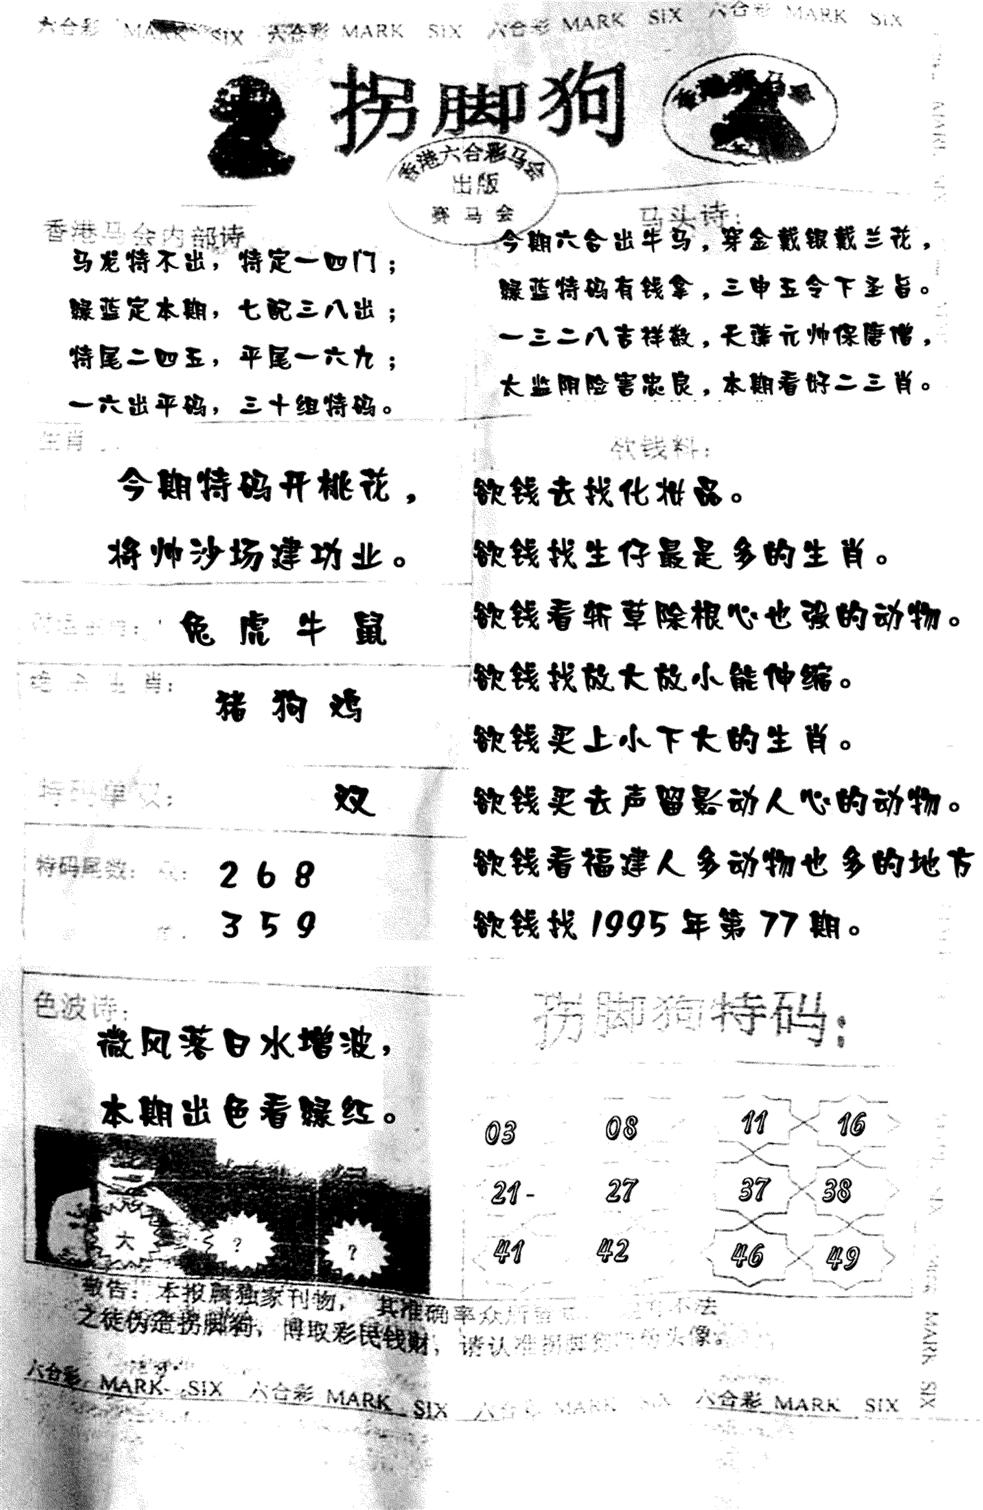 六合彩 MARK SIX 六合彩 MARK SIX 六合彩 MARK SIX 六合彩 MARK SIX
拐脚狗
香港赛马会
香港六合彩马会
出版
赛马会
香港马会内部诗
马龙特不出，特定一四门；
绿蓝定本期，七配三八出；
特尾二四五，平尾一六九；
一六出平码，三十组特码。
马头诗：
今期六合出牛马，穿金戴银戴兰花，
绿蓝特码有钱拿，三申五令下圣旨。
一三二八吉祥数，天蓬元帅保唐僧，
太监阴险害忠良，本期看好二三肖。
生肖
今期特码开桃花，
将帅沙场建功业。
兔 虎 牛 鼠
绝杀生肖：
猪 狗 鸡
特码单双：
双
特码尾数：双：
2 6 8
单：
3 5 9
欲钱料：
欲钱去找化妆品。
欲钱找生仔最是多的生肖。
欲钱看斩草除根心也强的动物。
欲钱找放大放小能伸缩。
欲钱买上小下大的生肖。
欲钱买去声留影动人心的动物。
欲钱看福建人多动物也多的地方
欲钱找1995年第77期。
色波诗：
微风落日水增波，
本期出色看绿红。
大 ? ?
拐脚狗特码：
03 08 11 16
21- 27 37 38
41 42 46 49
敬告：本报属独家刊物，其准确率众所
不法
之徒伪造拐脚狗，博取彩民钱财，请认准拐脚狗
头像
六合彩 MARK SIX 六合彩 MARK SIX 六合彩 MARK SIX 六合彩 MARK SIX
MARK SIX